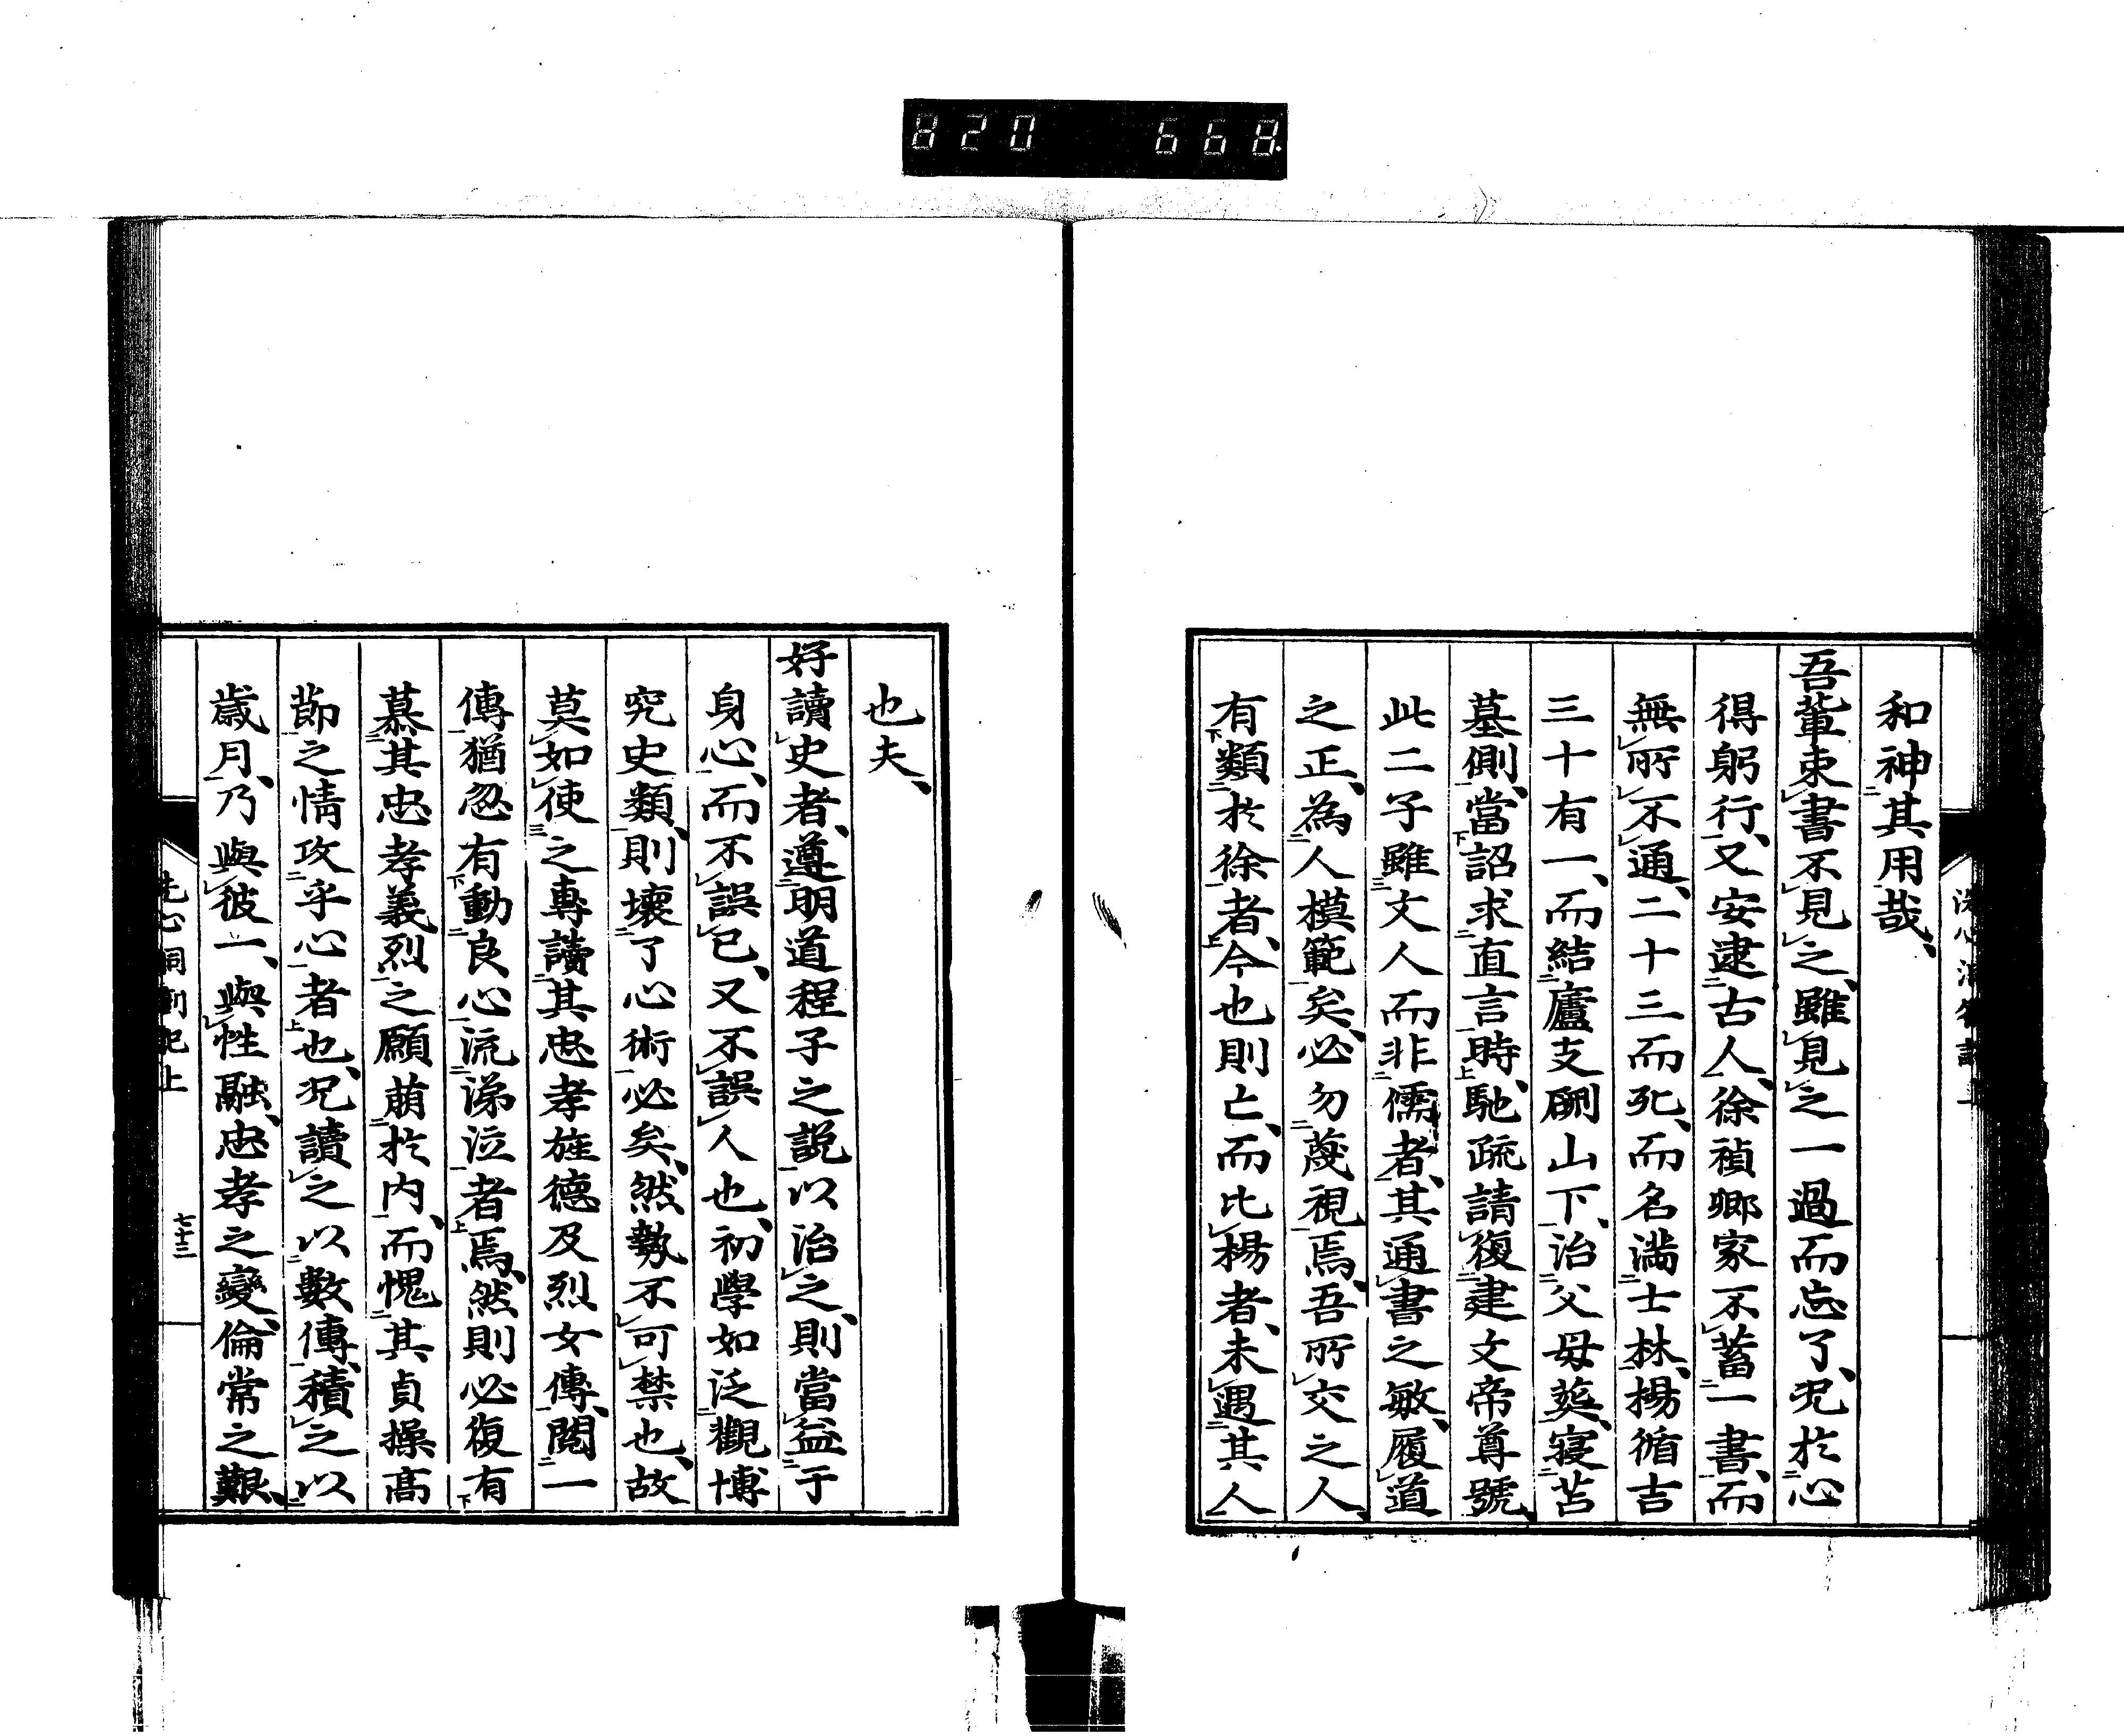 820 668
和神其用哉、
吾輩束書不見之、雖見之一過而忘了、況於心
得躬行、又安逮古人、徐禎卿家不蓄一書、而
無所不通、二十三而死、而名滿士林、楊循吉
三十有一、而結廬支硎山下、治父母葬、寢苫
墓側、當詔求直言時、馳疏請復建文帝尊號、
此二子雖文人而非儒者、其通書之敏、履道
之正、為人模範矣、必勿蔑視焉、吾所交之人、
有類於徐者、今也則亡、而比楊者、未遇其人
也夫、
好讀史者、遵明道程子之説以治之、則當益于
身心、而不誤已、又不誤人也、初學如泛觀博
究史類、則壞了心術必矣、然勢不可禁也、故
莫如使之專讀其忠孝旌德及烈女傳、閲一
傳猶忽有動良心流涕泣者焉、然則必復有
慕其忠孝義烈之願萠於内、而愧其貞操高
節之情攻乎心者也、況讀之以數傳、積之以
歳月、乃與彼一、與性融、忠孝之變、倫常之艱、
洗心洞劄記上
七十三